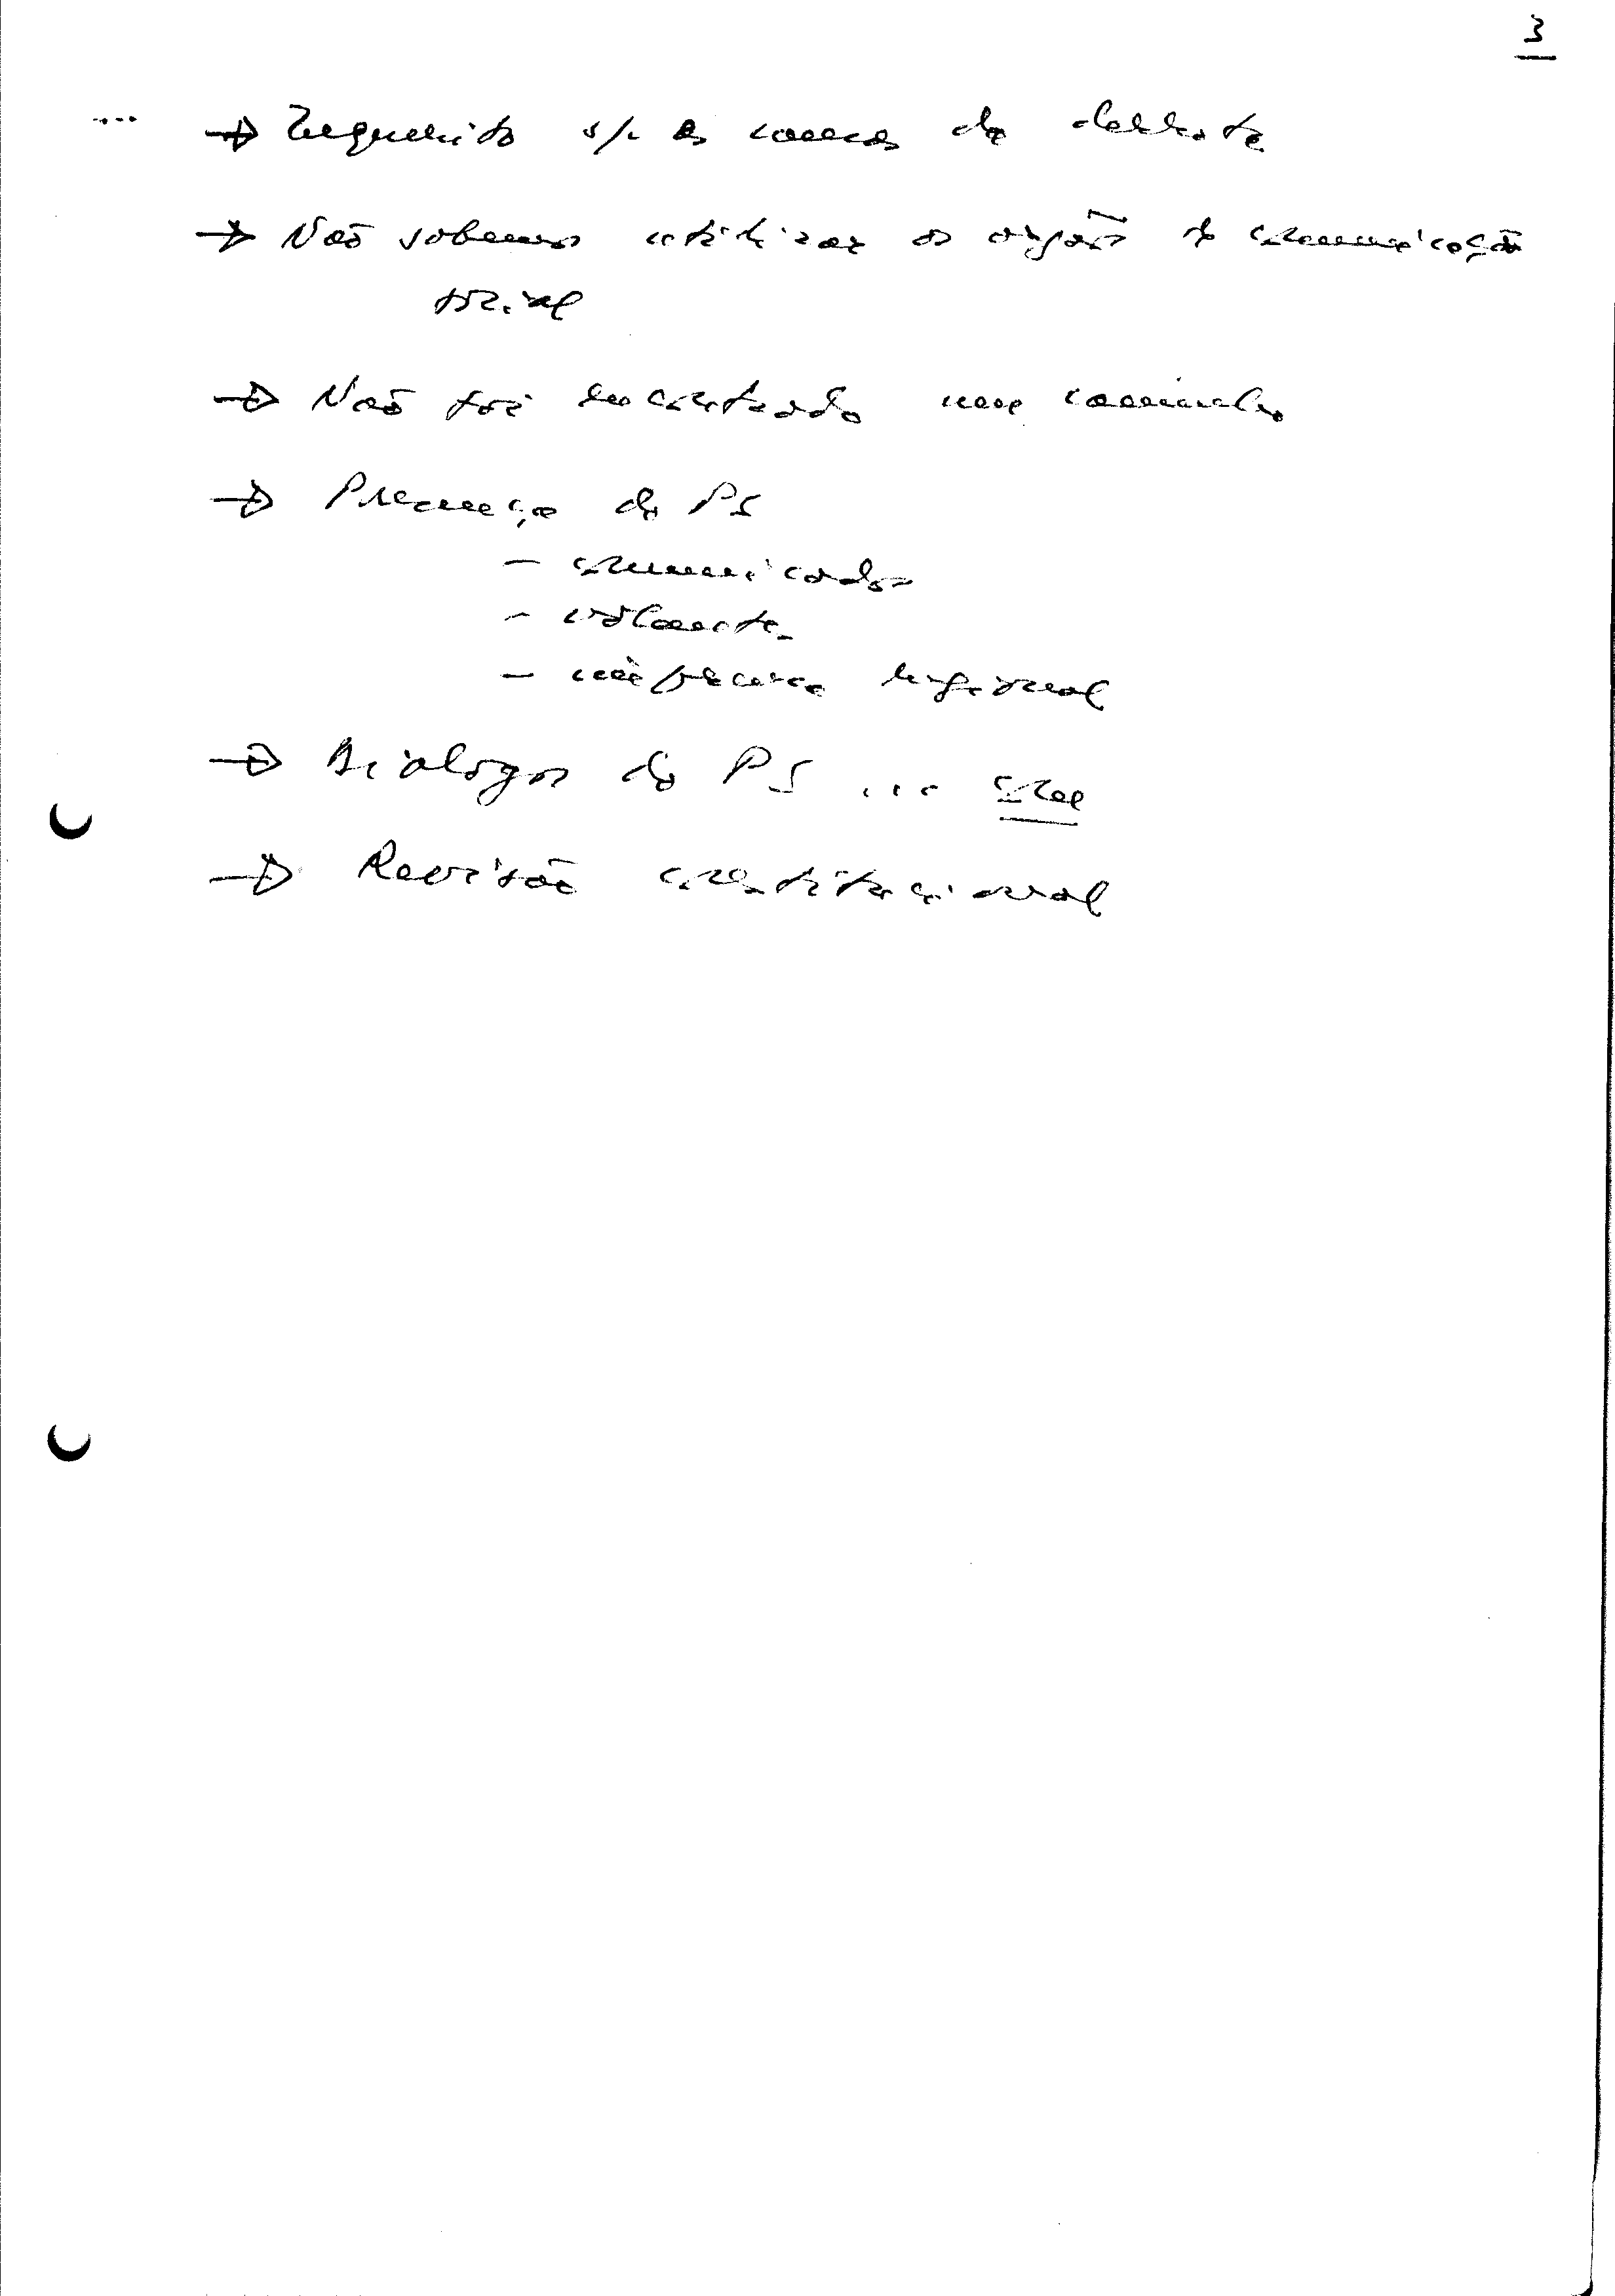 3
... → Inquérito s/. as causas da derrota
→ Não sabemos utilizar os orgãos de comunicação
social
→ Não foi encontrado um caminho
→ Presença do PS
- comunicados
- volante
- imprensa regional
→ Diálogos do PS ... com
→ Revisão constitucional